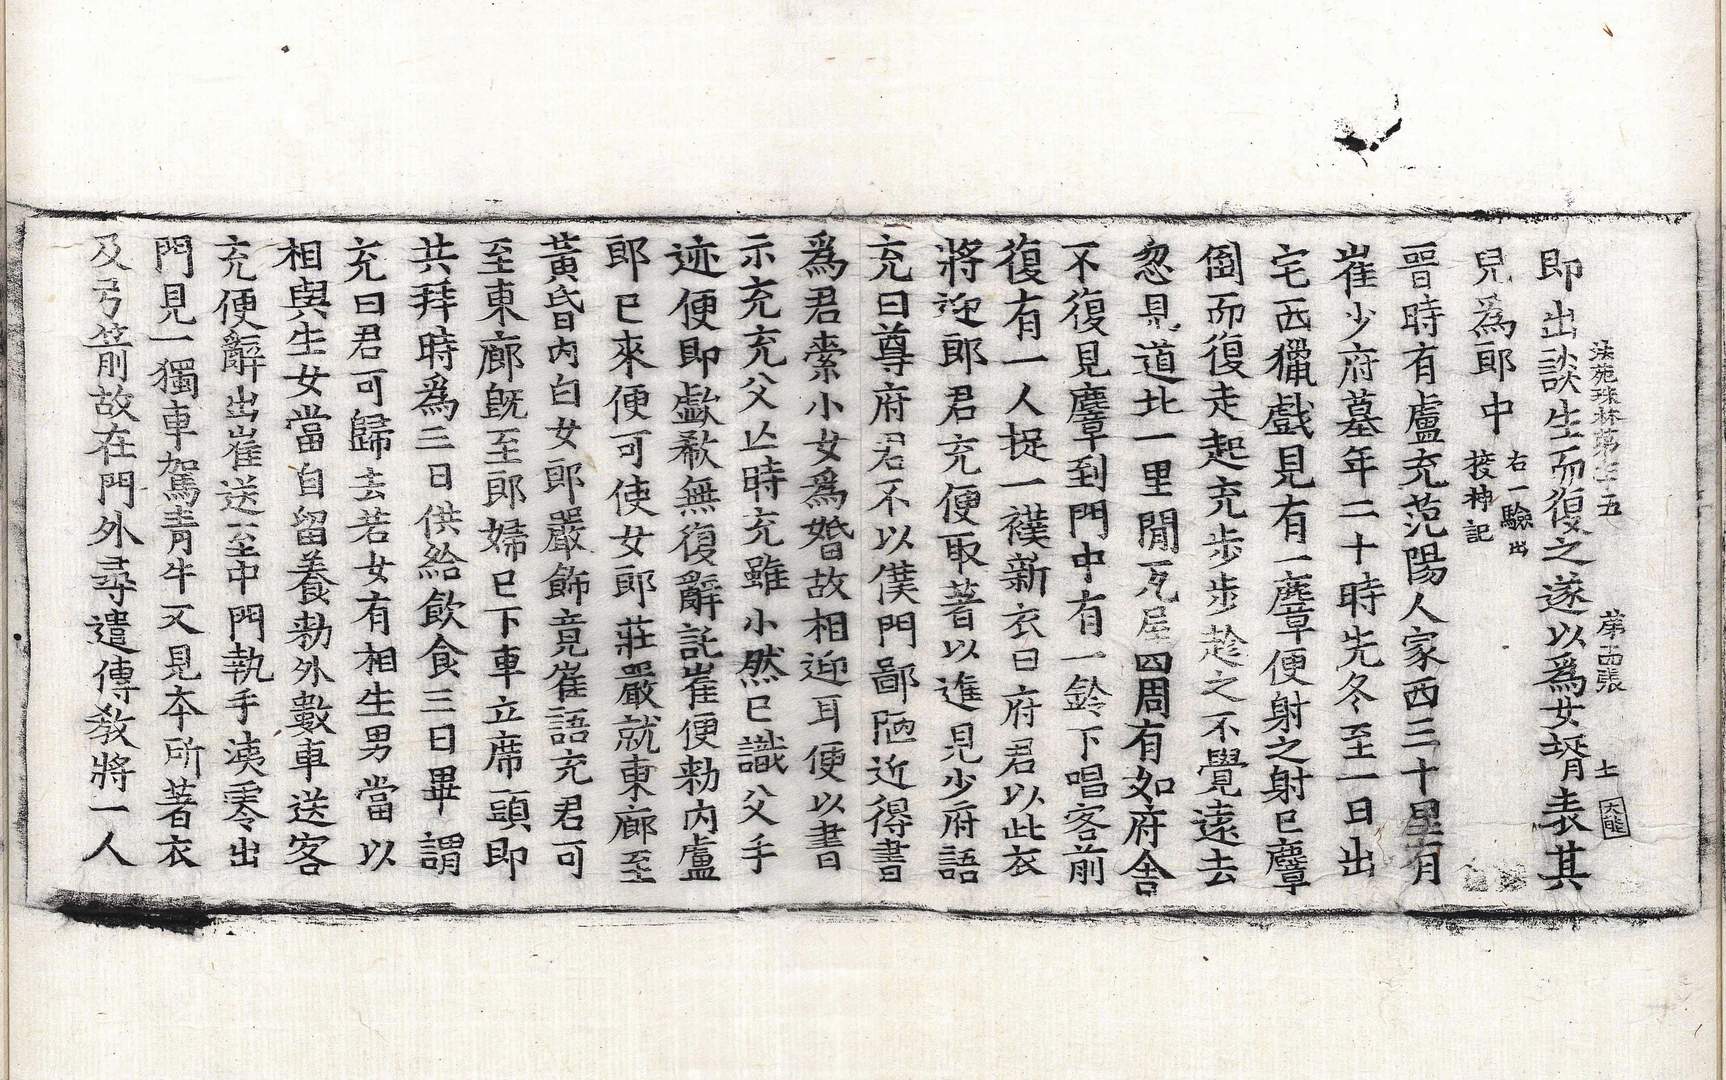 法苑珠林第七十五 第五張 士 大能
即出談生而復之遂以爲女壻表其
兒爲郎中 右一驗出搜神記
晉時有盧充范陽人家西三十里有
崔少府墓年二十時先冬至一日出
宅西獵戲見有一麞便射之射已麞
倒而復走起充步步趁之不覺遠去
忽見道北一里閒瓦屋四周有如府舍
不復見麞到門中有一鈴下唱客前
復有一人捉一襆新衣曰府君以此衣
將迎郎君充便取著以進見少府語
充曰尊府君不以僕門鄙陋近得書
爲君索小女爲婚故相迎耳便以書
示充充父亡時充雖小然已識父手
迹便即歔欷無復辭託崔便勑內盧
郎已來便可使女郎莊嚴就東廊至
黃昏內白女郎嚴飾竟崔語充君可
至東廊旣至郎婦已下車立席頭即
共拜時爲三日供給飮食三日畢謂
充曰君可歸去若女有相生男當以
相與生女當自留養勑外嚴車送客
充便辭出崔送至中門執手涕零出
門見一獨車駕靑牛又見本所著衣
及弓箭故在門外尋遣傳敎將一人